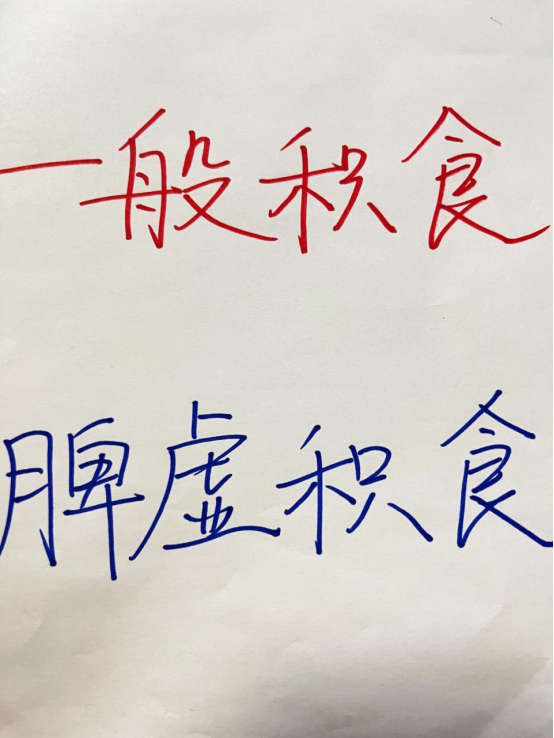 一般积食
脾虚积食